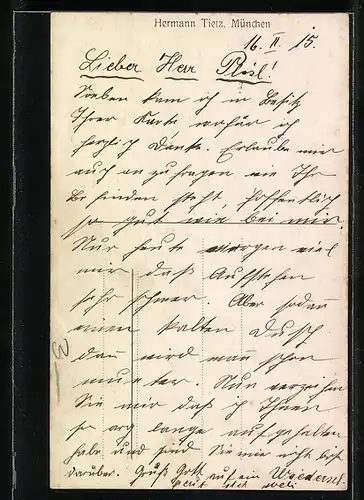 Hermann Tietz, München
16. II. 15.
Lieber Herr Rösl!
Soeben kam ich in Besitz
Ihrer Karte wofür ich
herzlich Danke. Erlaube mir
auch anzufragen wie Ihr
Befinden steht, hoffentlich
so gut wie bei mir.
Nur heute morgen viel
mir daß Aufstehen
sehr schwer. Aber sodan
einen kalten Dusch
dan wird man schon
munter. Nun verzeihen
Sie mir daß ich Ihnen
so arg lange aufgehalten
habe und sind Sie mir nicht bös
darüber. Grüß Gott auf ein Wiederseh.